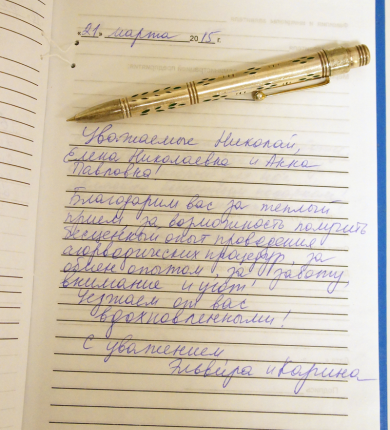 „21“ марта 2015 г.
Уважаемые Николай,
Елена Николаевна и Анна
Павловна!
Благодарим вас за теплый
прием, за возможность получить
бесценный опыт проведения
аюрведических процедур, за
обмен опытом, за заботу,
внимание и уют!
Уезжаем от вас
вдохновленными!
С уважением
Эльвира и Карина